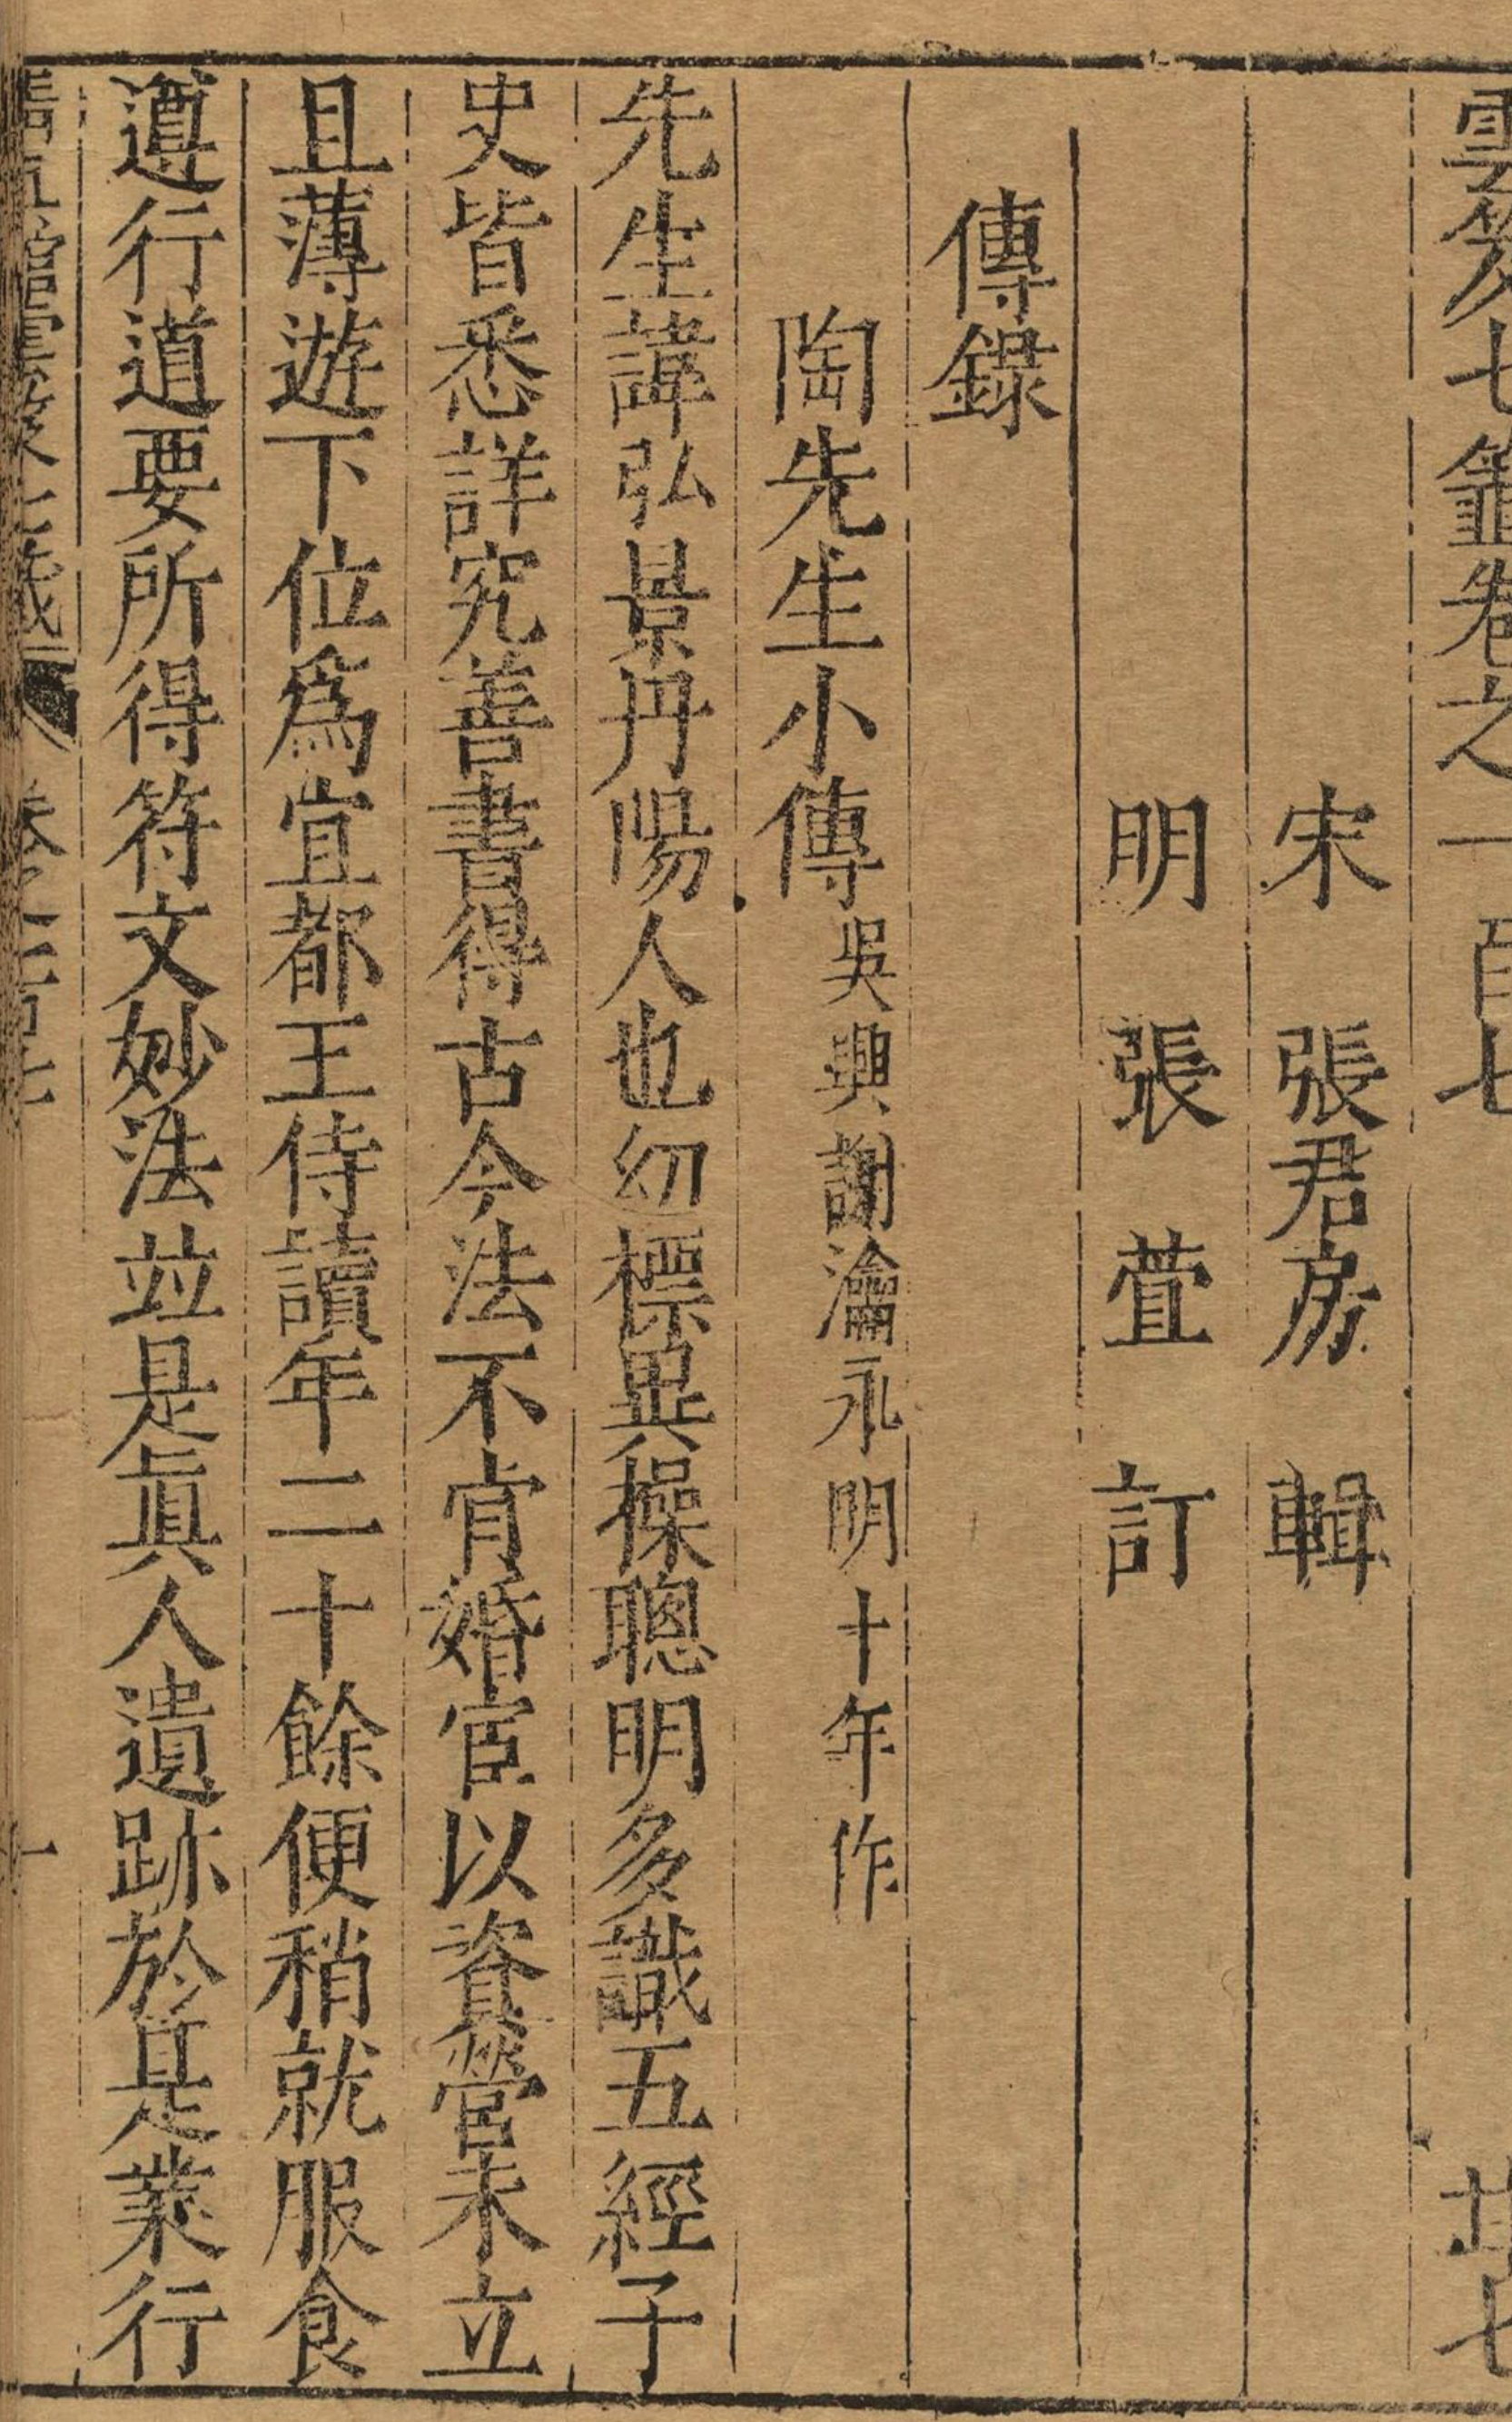 雲笈七籤卷之一百七 廿七
宋 張君房 輯
明 張萱 訂
傳錄
陶先生小傳 吳興謝瀹永明十年作
先生諱弘景丹陽人也幼標異操聰明多識五經子
史皆悉詳究善書得古今法不肎婚宦以資營未立
且薄遊下位爲宜都王侍讀年二十餘便稍就服食
遵行道要所得符文妙法並是眞人遺跡於是業行